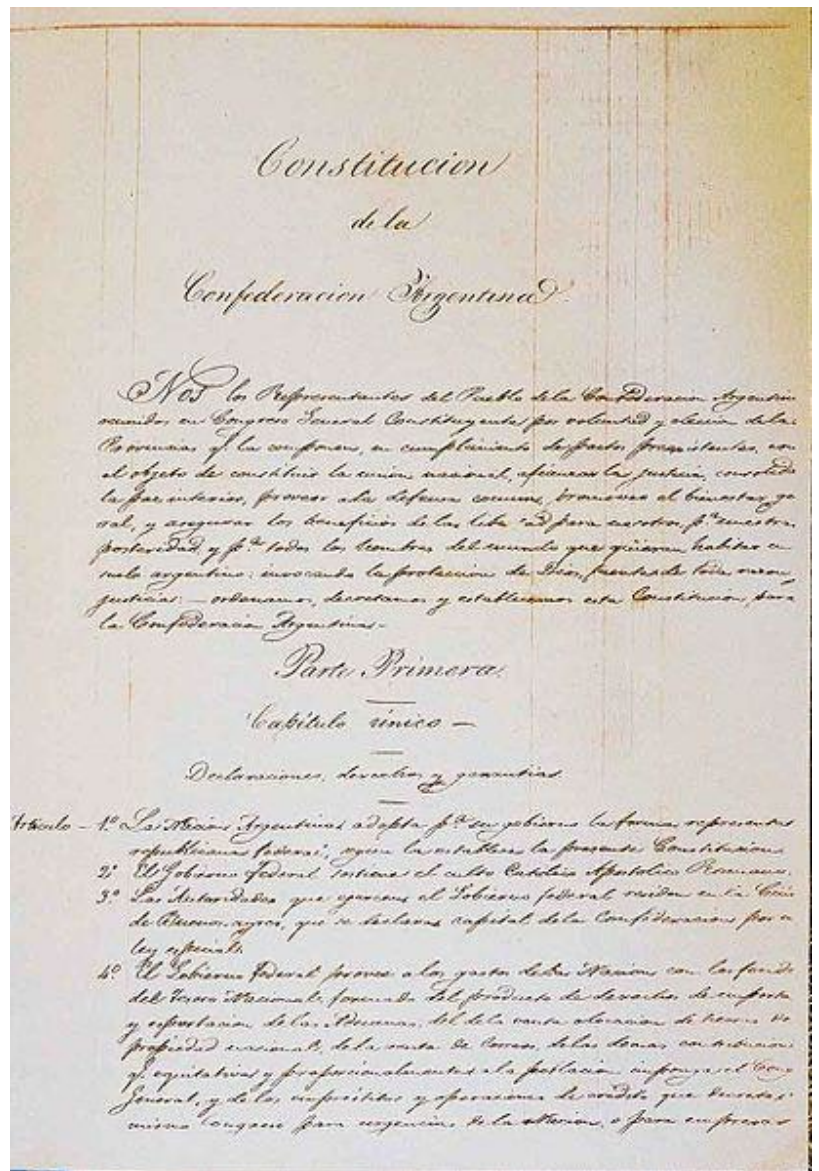 Constitucion
de la
Confederacion Argentina
Nos los Representantes del Pueblo de la Confederacion Argentina
reunidos en Congreso General Constituyente por voluntad y eleccion de las
Provincias q.e la componen, en cumplimiento de pactos preexistentes, con
el objeto de constituir la union nacional, afianzar la justicia, consolidar
la paz interior, proveer a la defensa comun, promover el bienestar ge
ral, y asegurar los beneficios de la libe ad para nosotros, p.a nuestra
posteridad y p.a todos los hombres del mundo que quieran habitar en
suelo argentino: invocando la proteccion de Dios, fuente de toda razon y
justicia: — ordenamos, decretamos y establecemos esta Constitucion, para
la Confederacion Argentina.—
Parte Primera.
Capitulo único —
Declaraciones, derechos y garantias.
Articulo — 1.º La Nacion Argentina adopta p.a su gobierno la forma representa
republicana federal, segun la establece la presente Constitucion
2.º El Gobierno federal sostiene el culto Católico Apostolico Romano.
3.º Las Autoridades que ejercen el Gobierno federal residen en la
de Buenos ayres, que se declara capital de la Confederacion por
ley especial.
4.º El Gobierno Federal provee a los gastos de la Nacion con los fondos
del Tesoro Nacional, formado del producto de derechos de importa
y esportacion de las Aduanas, del de la venta o locacion de tierras de
propiedad nacional, de la renta de Correos, de las demas contribucion
q.e equitativa y proporcionalmente a la poblacion imponga el Cong
General, y de los empréstitos y operaciones de credito que decrete
mismo Congreso para urgencias de la Nacion, o para empresas